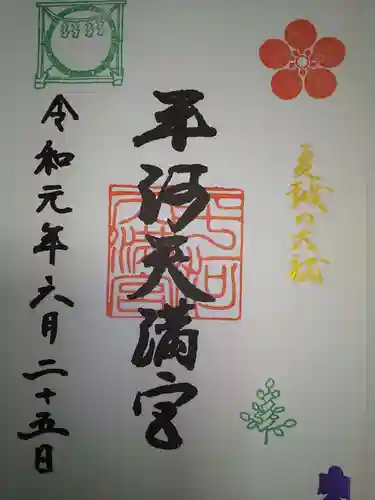 夏越の大祓
平河天満宮
平河天満宮
令和元年六月二十五日